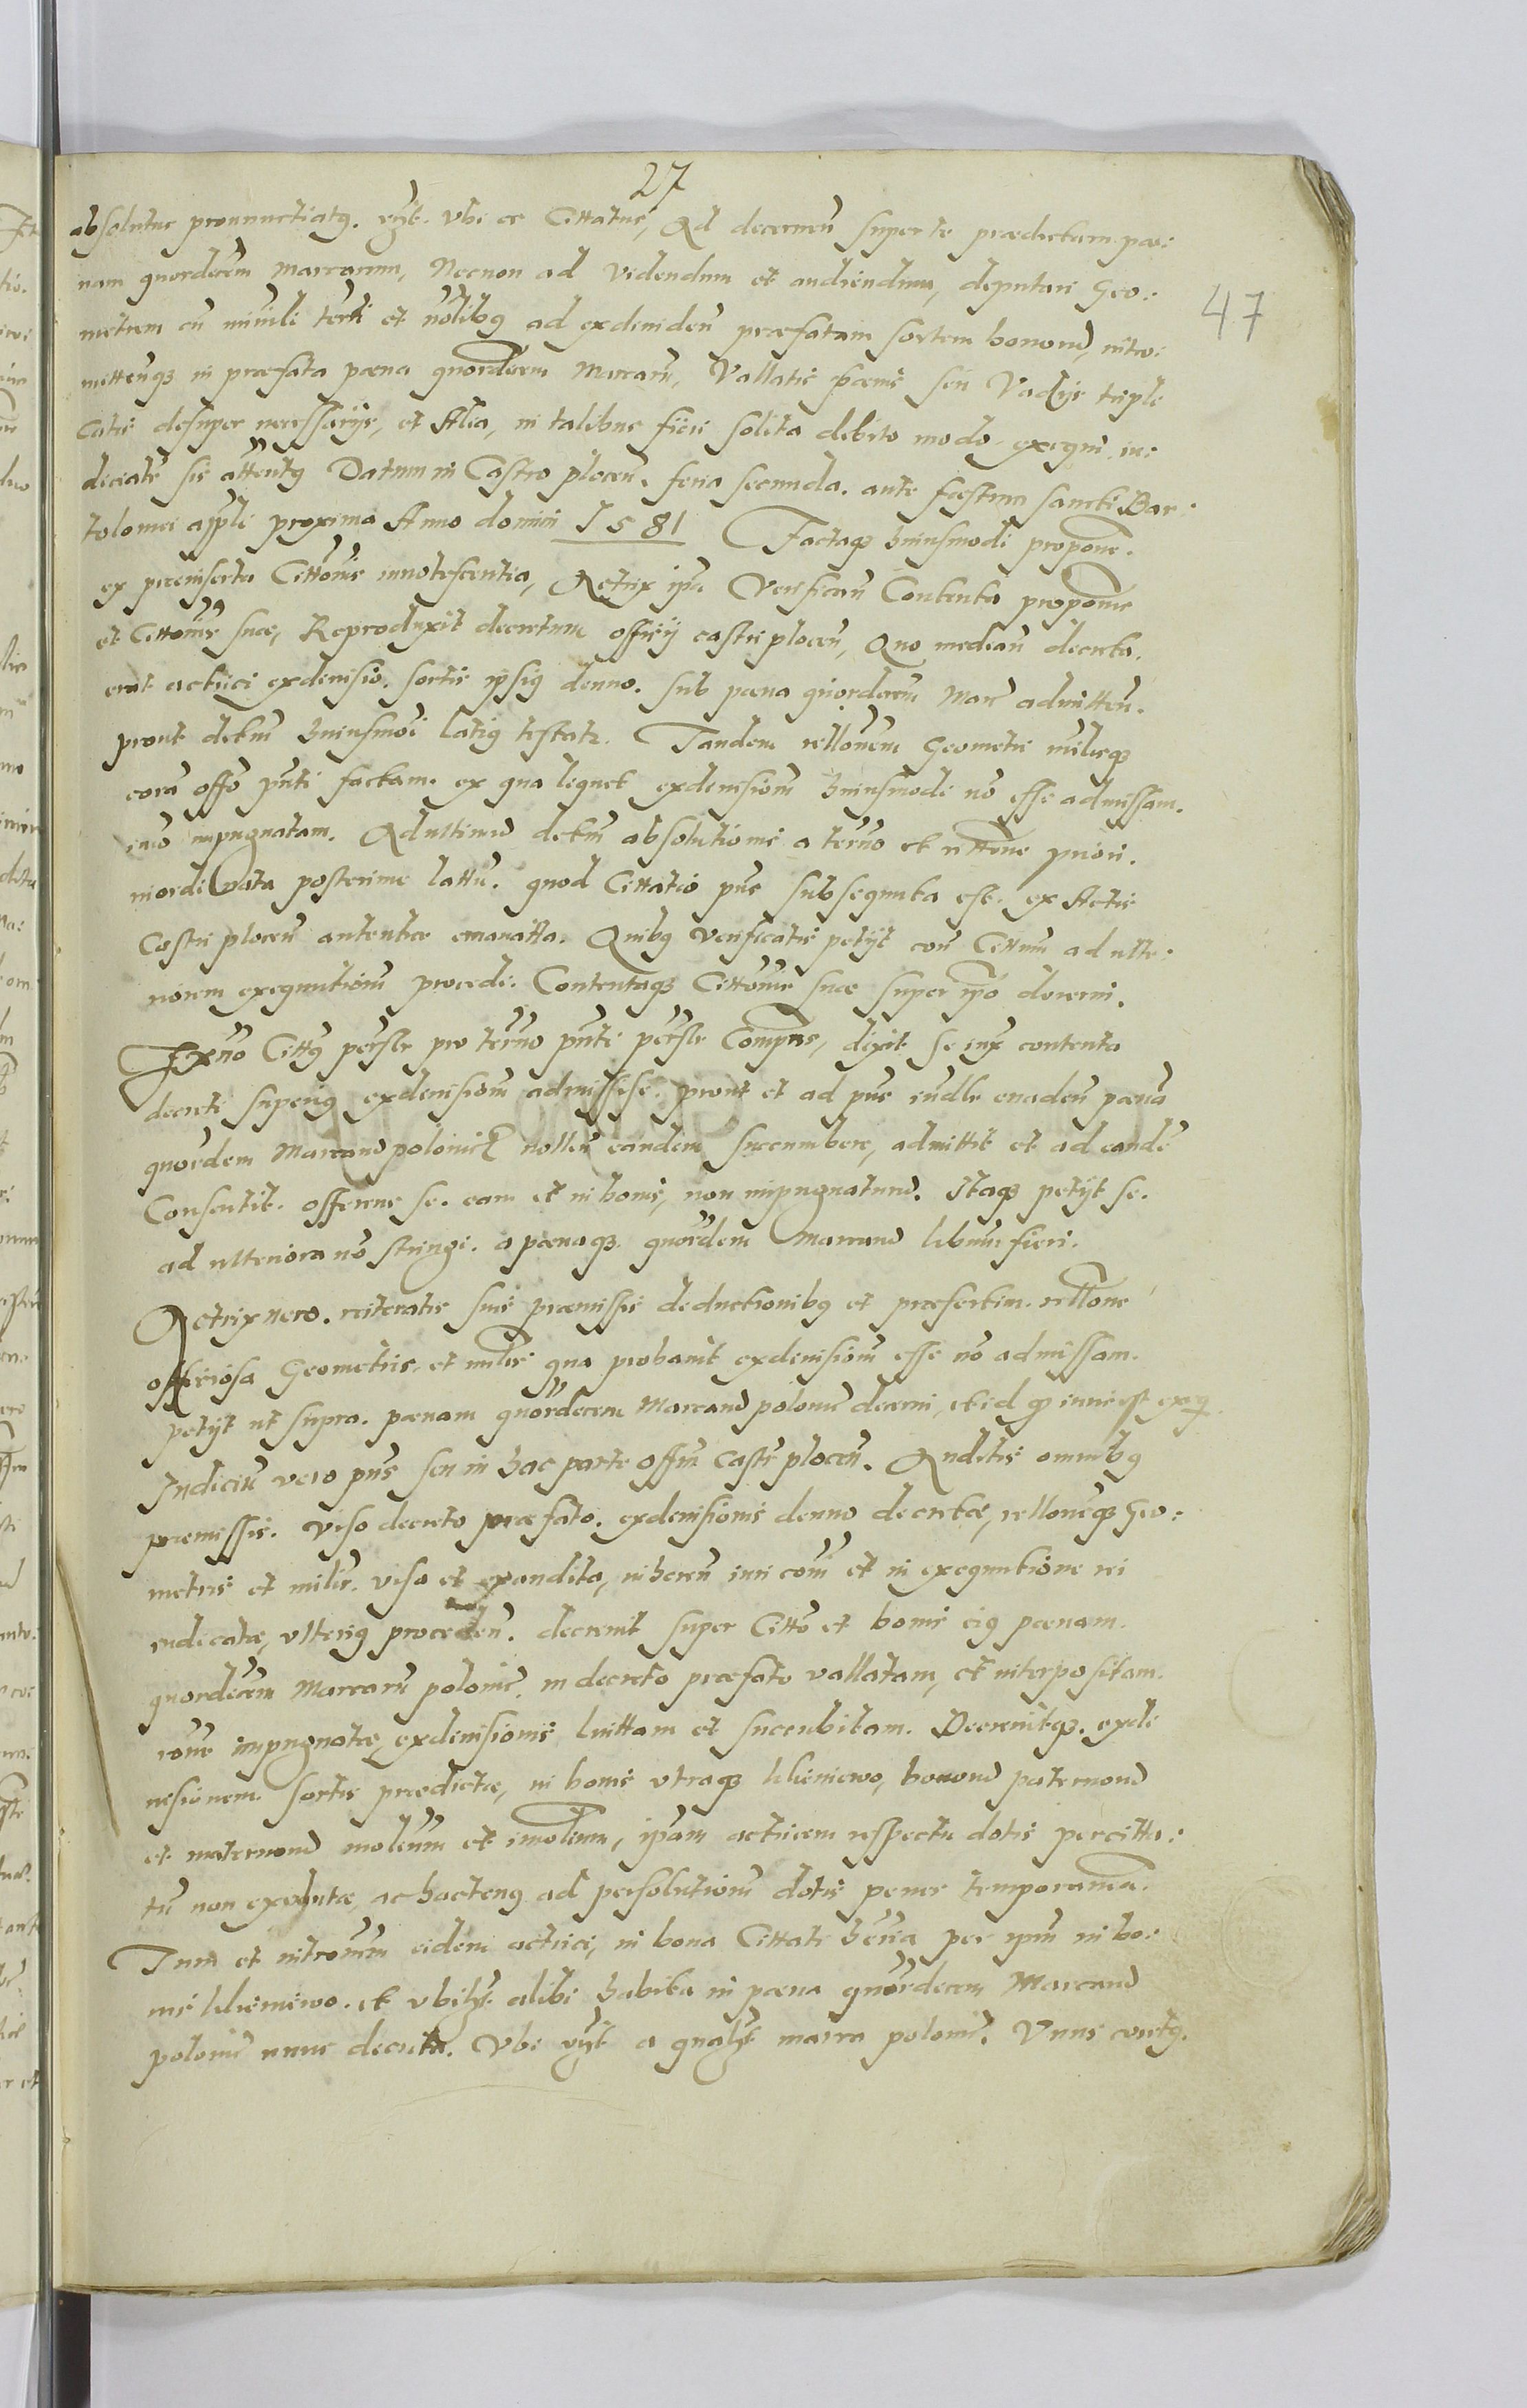 27
47
absolutus pronunctiatꝰ. exit. Vbi es Cittatus, Ad decernen̄ super te prædictam pœ:
nam quordecem Marcarum, Necnon ad Videndum et audiendum, deputari Geo:
metrem cū mīnīli terri et nōlibꝰ ad exdividen̄ præfatam sortem bonorū, intro:
mittenqꝫ in præfata pœna quordecem Marcarū, Vallatis pœnis seu Vadijs triplt
catis desuper necessarijs, et Alia, in talibus fieri solita debito modo exequi. iu:
diciatr̄ sis attentꝰ Datum in Castro plocen̄. feria secunda. ante festum sancti Bar:
tolomei appli proxima Anno domini 1581 Factaqꝫ huiusmodi propone.
ex præinserta Cittonis innotescentia, Actrix ipa Verifican̄ Contenta proponis
et Cittonis suæ, Reproduxit decretum officij castri plocen̄, Quo median̄ decreta.
erat actrici exdeuisio. sortis ipsiꝰ denuo. sub pœna quordecem Marc̄ admitten̄.
prout detm̄ huiusmoi latiꝰ testatr. Tandem rellonem Geometri mīlisqꝫ
corā offo pnti factam. ex qua liquet exdeuisionem huiusmodi nō esse admissam.
imo impugnatam. Ad ultimū detm̄ absolutionis a termo et rittone priori.
Data posterime lattū. quod Cittatio pns subsequuta est. ex Actis
Castri plocen̄ autentice emanatta. Quibꝰ verificatis petijt con̄ Cittum ad ulte:
riorem exequutionem procedi. Contentaqꝫ Cittonis suæ super ipo decerni.
Exn̄o Cittꝰ perslr pro termo pnti perslr Compns, dixit se iux contenta
decreti superiꝰ exdeuisionem admissise. prout et ad pns iudlr euaden̄ pœnā
quordem Marcarū polonicz nollen̄ eandem succumbere, admittit et ad eandē
Consentit. offerens se. eam et in bonis, non impugnaturū. Itaqꝫ petijt se.
ad ulteriora nō stringi. a pœnaqꝫ. quordem Marcarū liberum fieri.
Actrix uero. reiteratis suis præmissis deductionibꝰ et præsertim. rellone
officiosa Geometris et milis qua probauit exdeuisionem esse nō admissam.
petijt ut supra. pœnam quordecem Marcarū polonic̄ decerni, et id qd iuris est exeq.
Iudiciū vero pns seu in hac parte offm̄ Castr̄ plocen̄. Auditis omnibꝰ
præmissis. viso decreto præfato. exdeuisionis denuo decretæ, relloneqꝫ Geo:
metris et milis. visa et exaudita, inheren̄ iuri coīi et in exequutione rei
iudicatæ, vlteriꝰ proceden̄. decreuit super Citto et bonis eiꝰ pœnam.
quordecem Marcarū polonic̄. in decreto præfato vallatam, et interpositam.
rone impugnatæ exdeuisionis luittam et succubitam. Decreuitqꝫ. exdi
uisionem sortis prædictæ, in bonis vtraqꝫ lelieniewo, bonorū paternorū
et maternorū mobiliu͂m et imobilium, ipsam actricem respectu dotis per citta:
tū non exolutæ, ac hactenꝰ ad persolutionem dotis penes temporamea.
Tum et intromissm̄ eidem actrici, in bona Cittati heria per ipm in bo:
nis lelieniewo. et vbilꝫ alibi habita in pœna quordecem Marcarū
polonic̄ nunc decreta. Vbi exit a qualꝫ marca polonic̄. Vnus contꝰ.